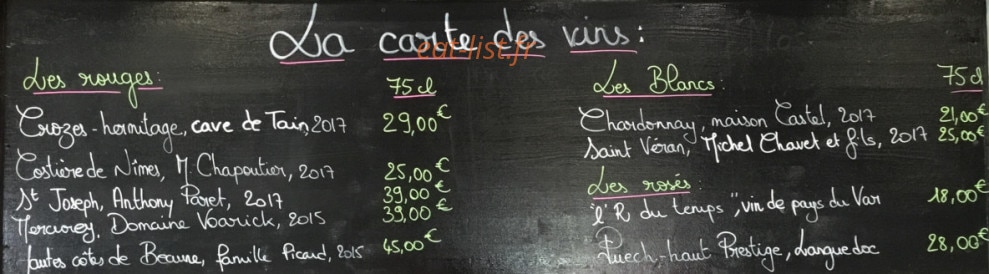 La carte des vins:
eat-list.fr
Les rouges: 75 cl
Crozes-hermitage, cave de Tain, 2017 29,00€
Costière de Nîmes, M. Chapoutier, 2017 25,00€
St Joseph, Anthony Paret, 2017 39,00€
Mercurey, Domaine Voarick, 2015 39,00€
Hautes côtes de Beaune, famille Picard, 2015 45,00€
Les Blancs: 75 cl
Chardonnay, maison Castel, 2017 21,00€
Saint Véran, Michel Chavet et fils, 2017 25,00€
Les rosés:
"l'R du temps", vin de pays du Var 18,00€
Puech-haut Prestige, Languedoc 28,00€